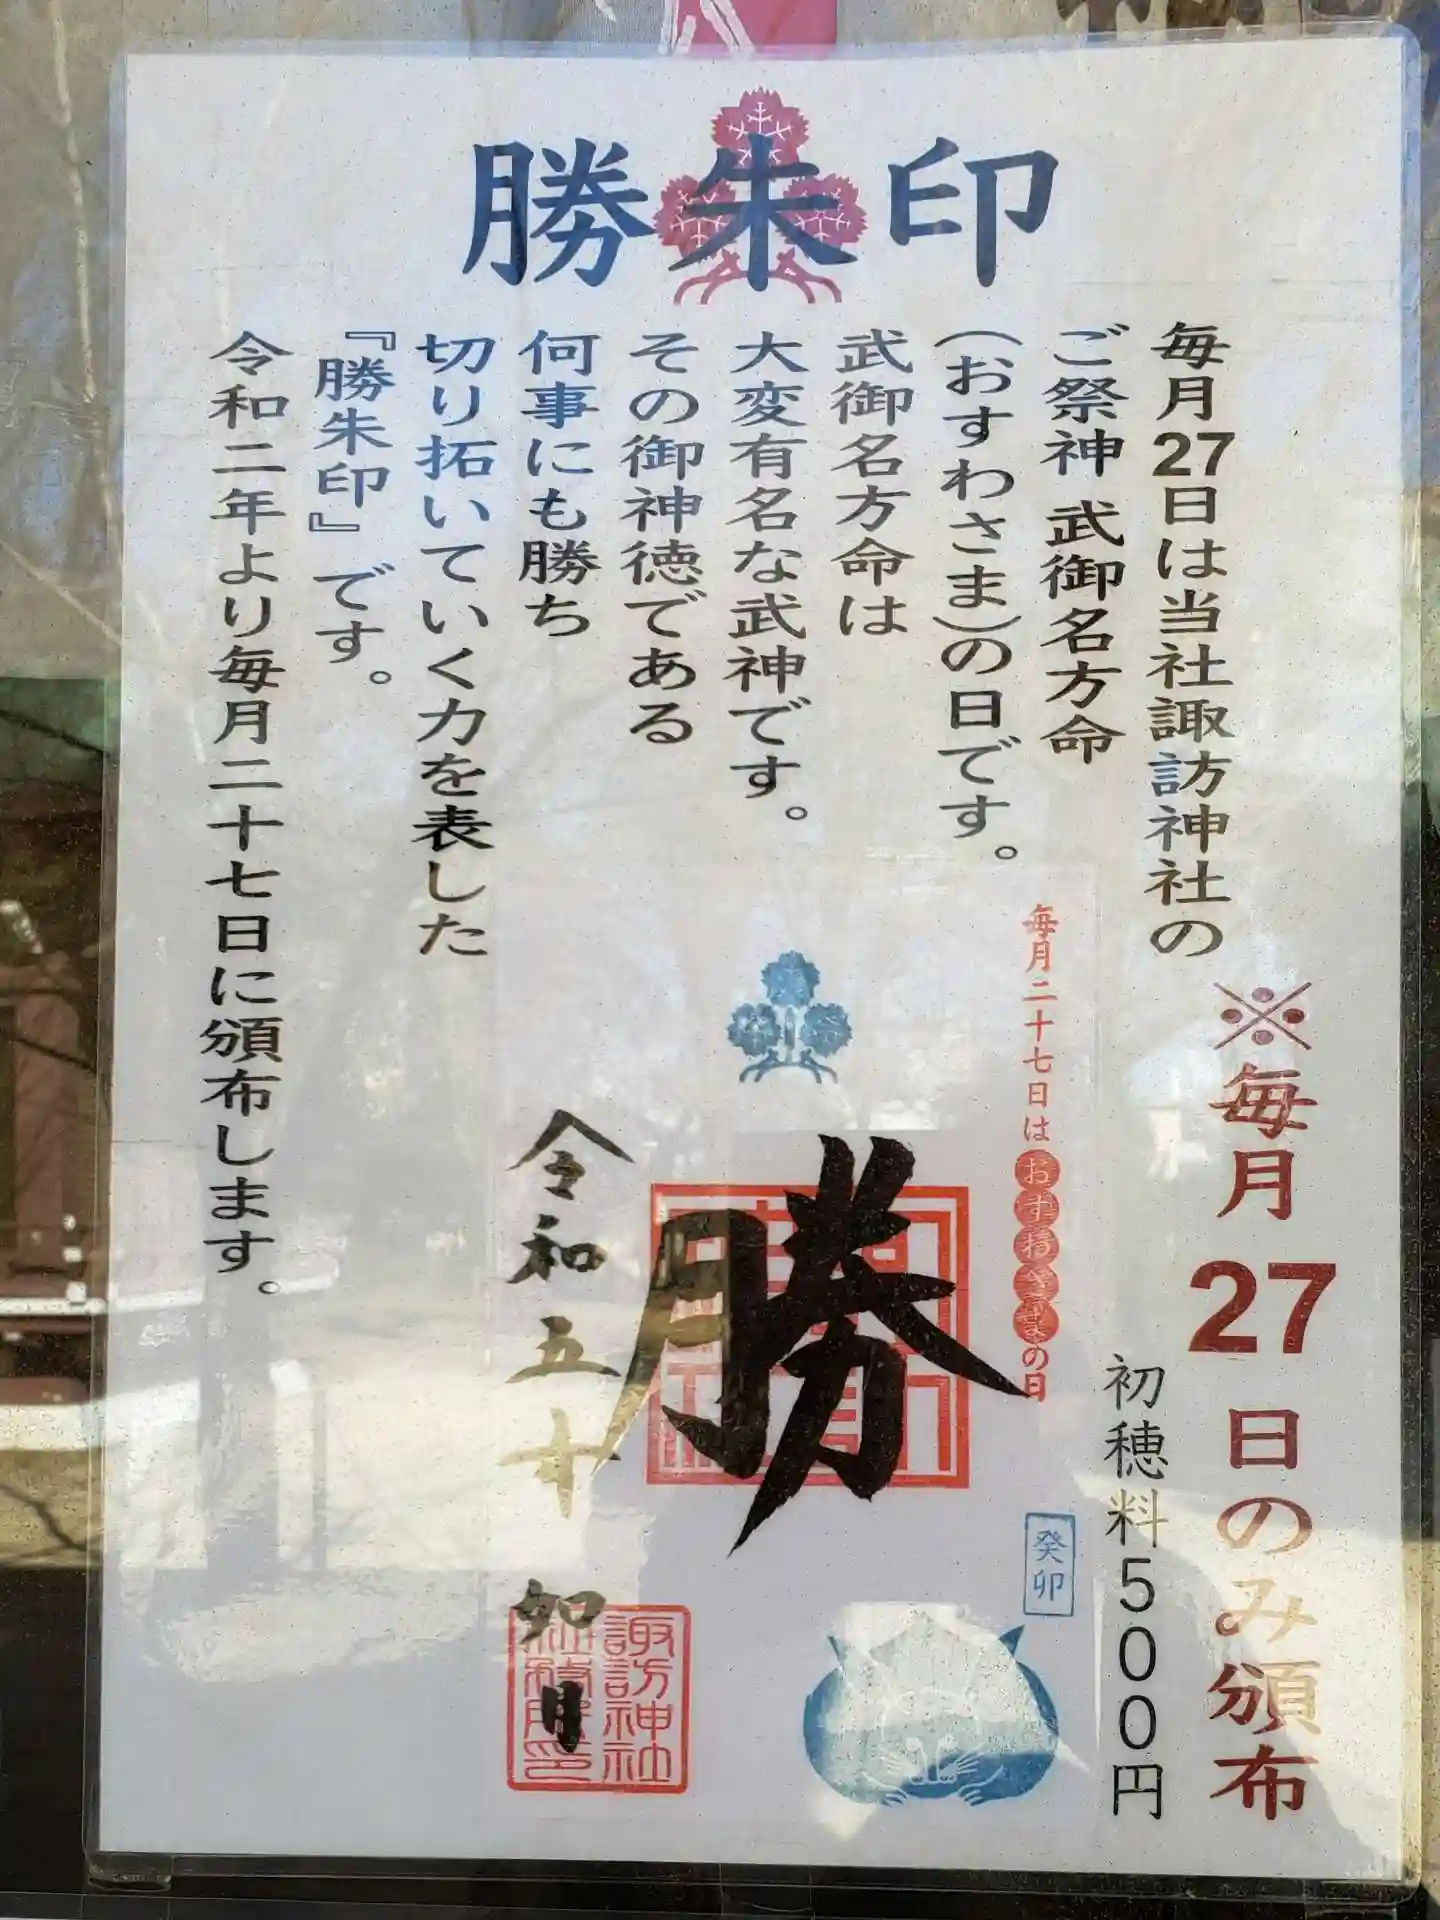 勝朱印
毎月27日は当社諏訪神社の
ご祭神 武御名方命
(おすわさま)の日です。
武御名方命は
大変有名な武神です。
その御神徳である
何事にも勝ち
切り拓いていく力を表した
『勝朱印』です。
令和二年より毎月二十七日に頒布します。
※毎月27日のみ頒布
初穂料500円
毎月二十七日はおすわさまの日
勝
令和五年
如月
癸卯
諏訪神社